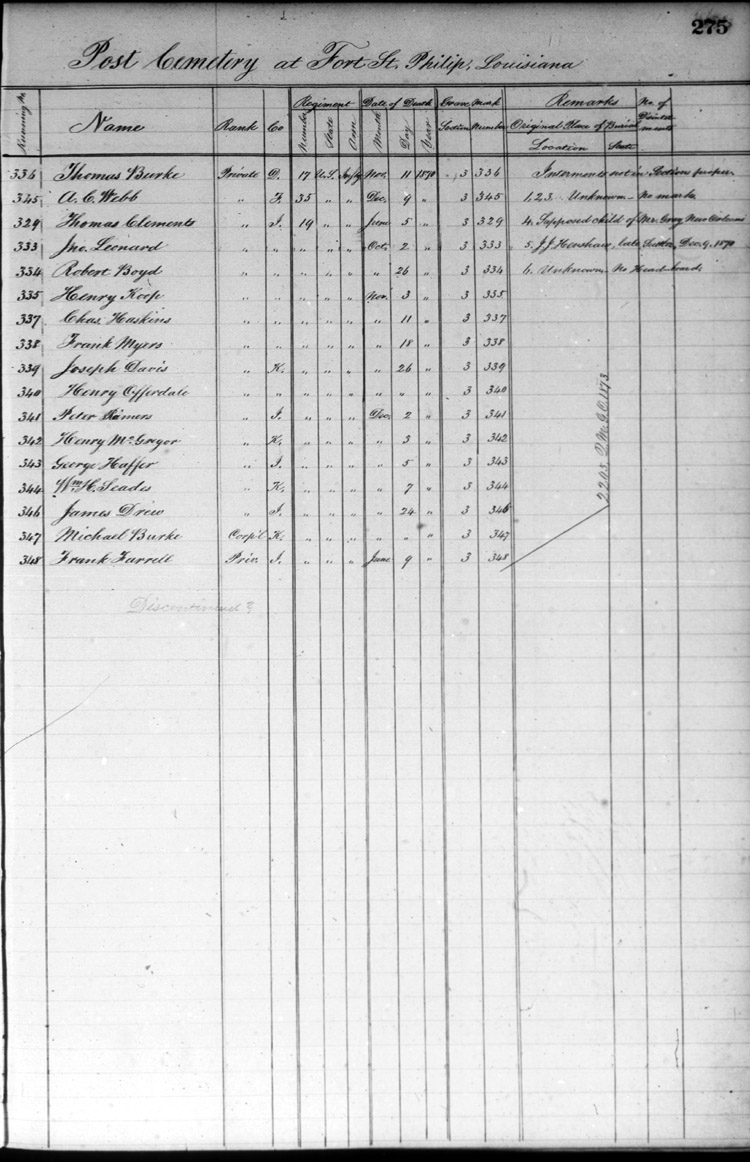 275
Post Cemetery at Fort St. Philip, Louisiana
Running No. Name Rank Co Regiment Number State Arm Date of Death Month Day Year Grave Mark Section Number Remarks Original Place of Burial Location State No. of Disinterments
336 Thomas Burke Private D. 17 U.S. Inf'y Nov. 11 1870 3 336 Interments not in Section proper
345 A. C. Webb " F. 35 " " Dec. 9 " 3 345 1,2,3. Unknown No marks
329 Thomas Clements " I. 19 " " June 5 " 3 329 4. Supposed child of Mr. New Orleans
333 Jno. Leonard " " " " " Oct. 2 " 3 333 5. J. J. Henshaw, late Dec. 9, 1870
334 Robert Boyd " " " " " " 26 " 3 334 6. Unknown No Head-board.
335 Henry Koop " " " " " Nov. 3 " 3 335
337 Chas. Haskins " " " " " " 11 " 3 337
338 Frank Myers " " " " " " 18 " 3 338
339 Joseph Davis " K. " " " " 26 " 3 339
340 Henry Offerdale " " " " " " " " 3 340
341 Peter Ramers " I. " " " Dec. 2 " 3 341
342 Henry McGregor " K. " " " " 3 " 3 342
343 George Haffer " I. " " " " 5 " 3 343
344 Wm. H. Seades " K. " " " " 7 " 3 344
346 James Drew " I. " " " " 24 " 3 346
347 Michael Burke Corp'l K. " " " " " " 3 347
348 Frank Farrell Priv. I. " " " June 9 " 3 348
2203 Q.M.G.O. 1873
Discontinued?